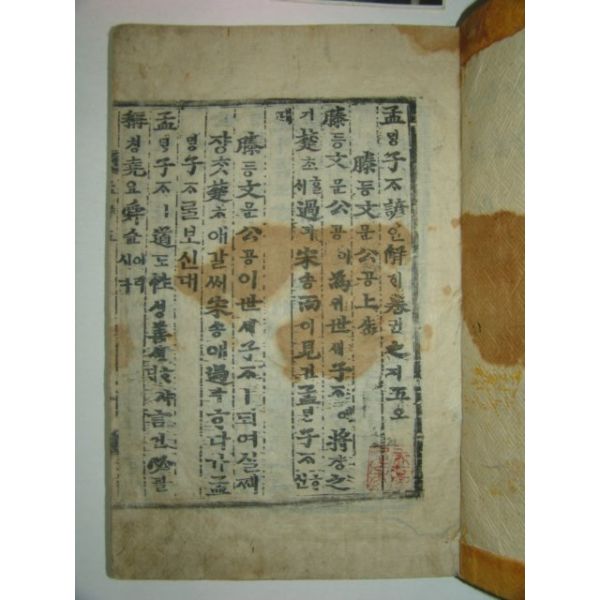 孟밍子ᄌᆞ諺언解ᄒᆡ卷권之지五오
滕등文문公공上샹
滕등文문公공이爲위世셰子ᄌᆞ애將쟝之
지楚초ᄒᆞᆯ셰過과宋송而이見견孟밍子ᄌᆞᄒᆞ신
대
滕등文문公공이世셰子ᄌᆞㅣ되여실제
쟝ᄎᆞᆺ楚초애갈ᄊᆡ宋송애過과ᄒᆞ다가孟
밍子ᄌᆞᄅᆞᆯ보신대
孟밍子ᄌᆞㅣ道도性셩善션ᄒᆞ샤ᄃᆡ言언必필
稱칭堯요舜슌이러시다